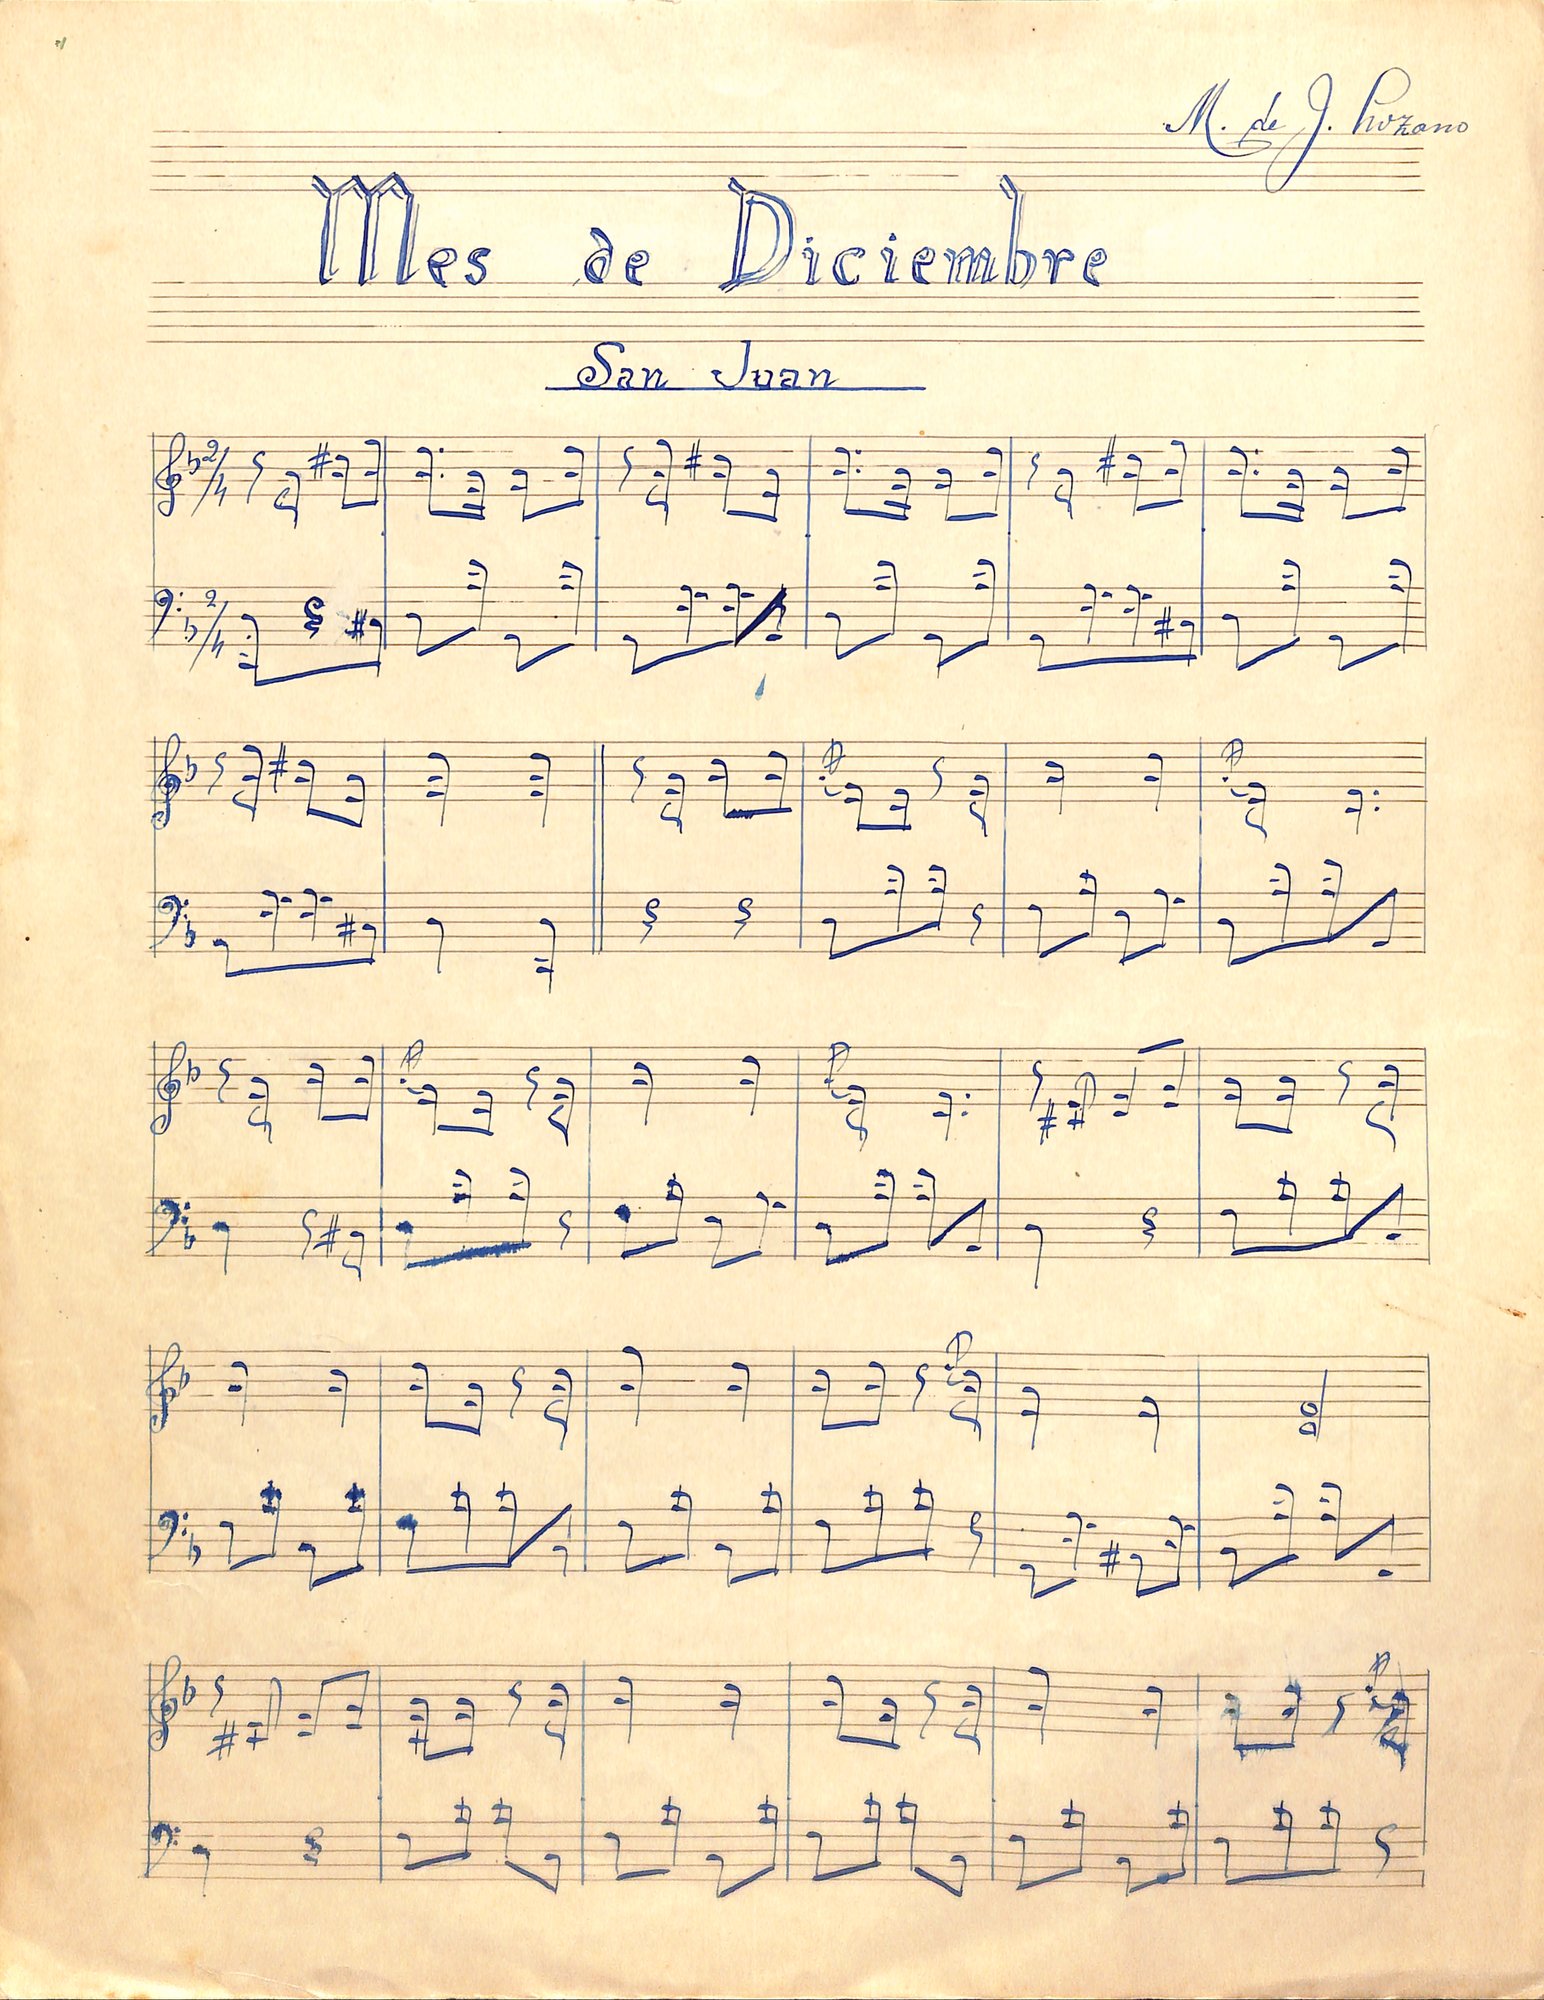 M. de J. Lozano
Mes de Diciembre
San Juan
2/4
2/4